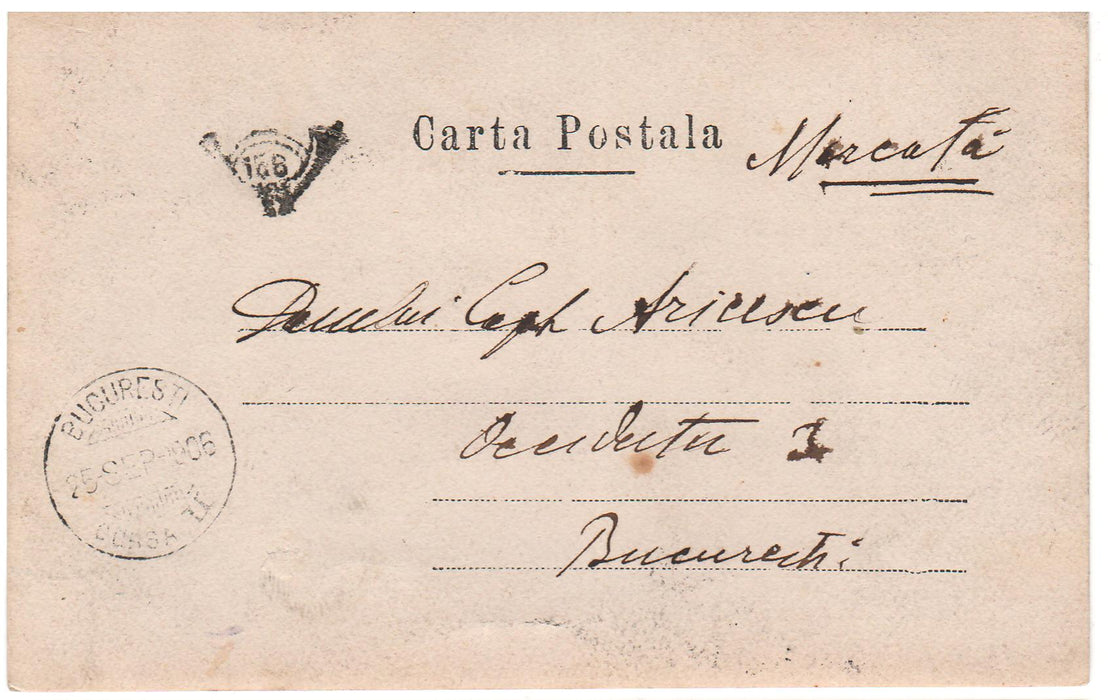 Carta Postala
Marcată
166
Domnului Caph Aricescu
Occidentu 1
Bucuresti
BUCURESTI
25-SEP-1906
CURSA II